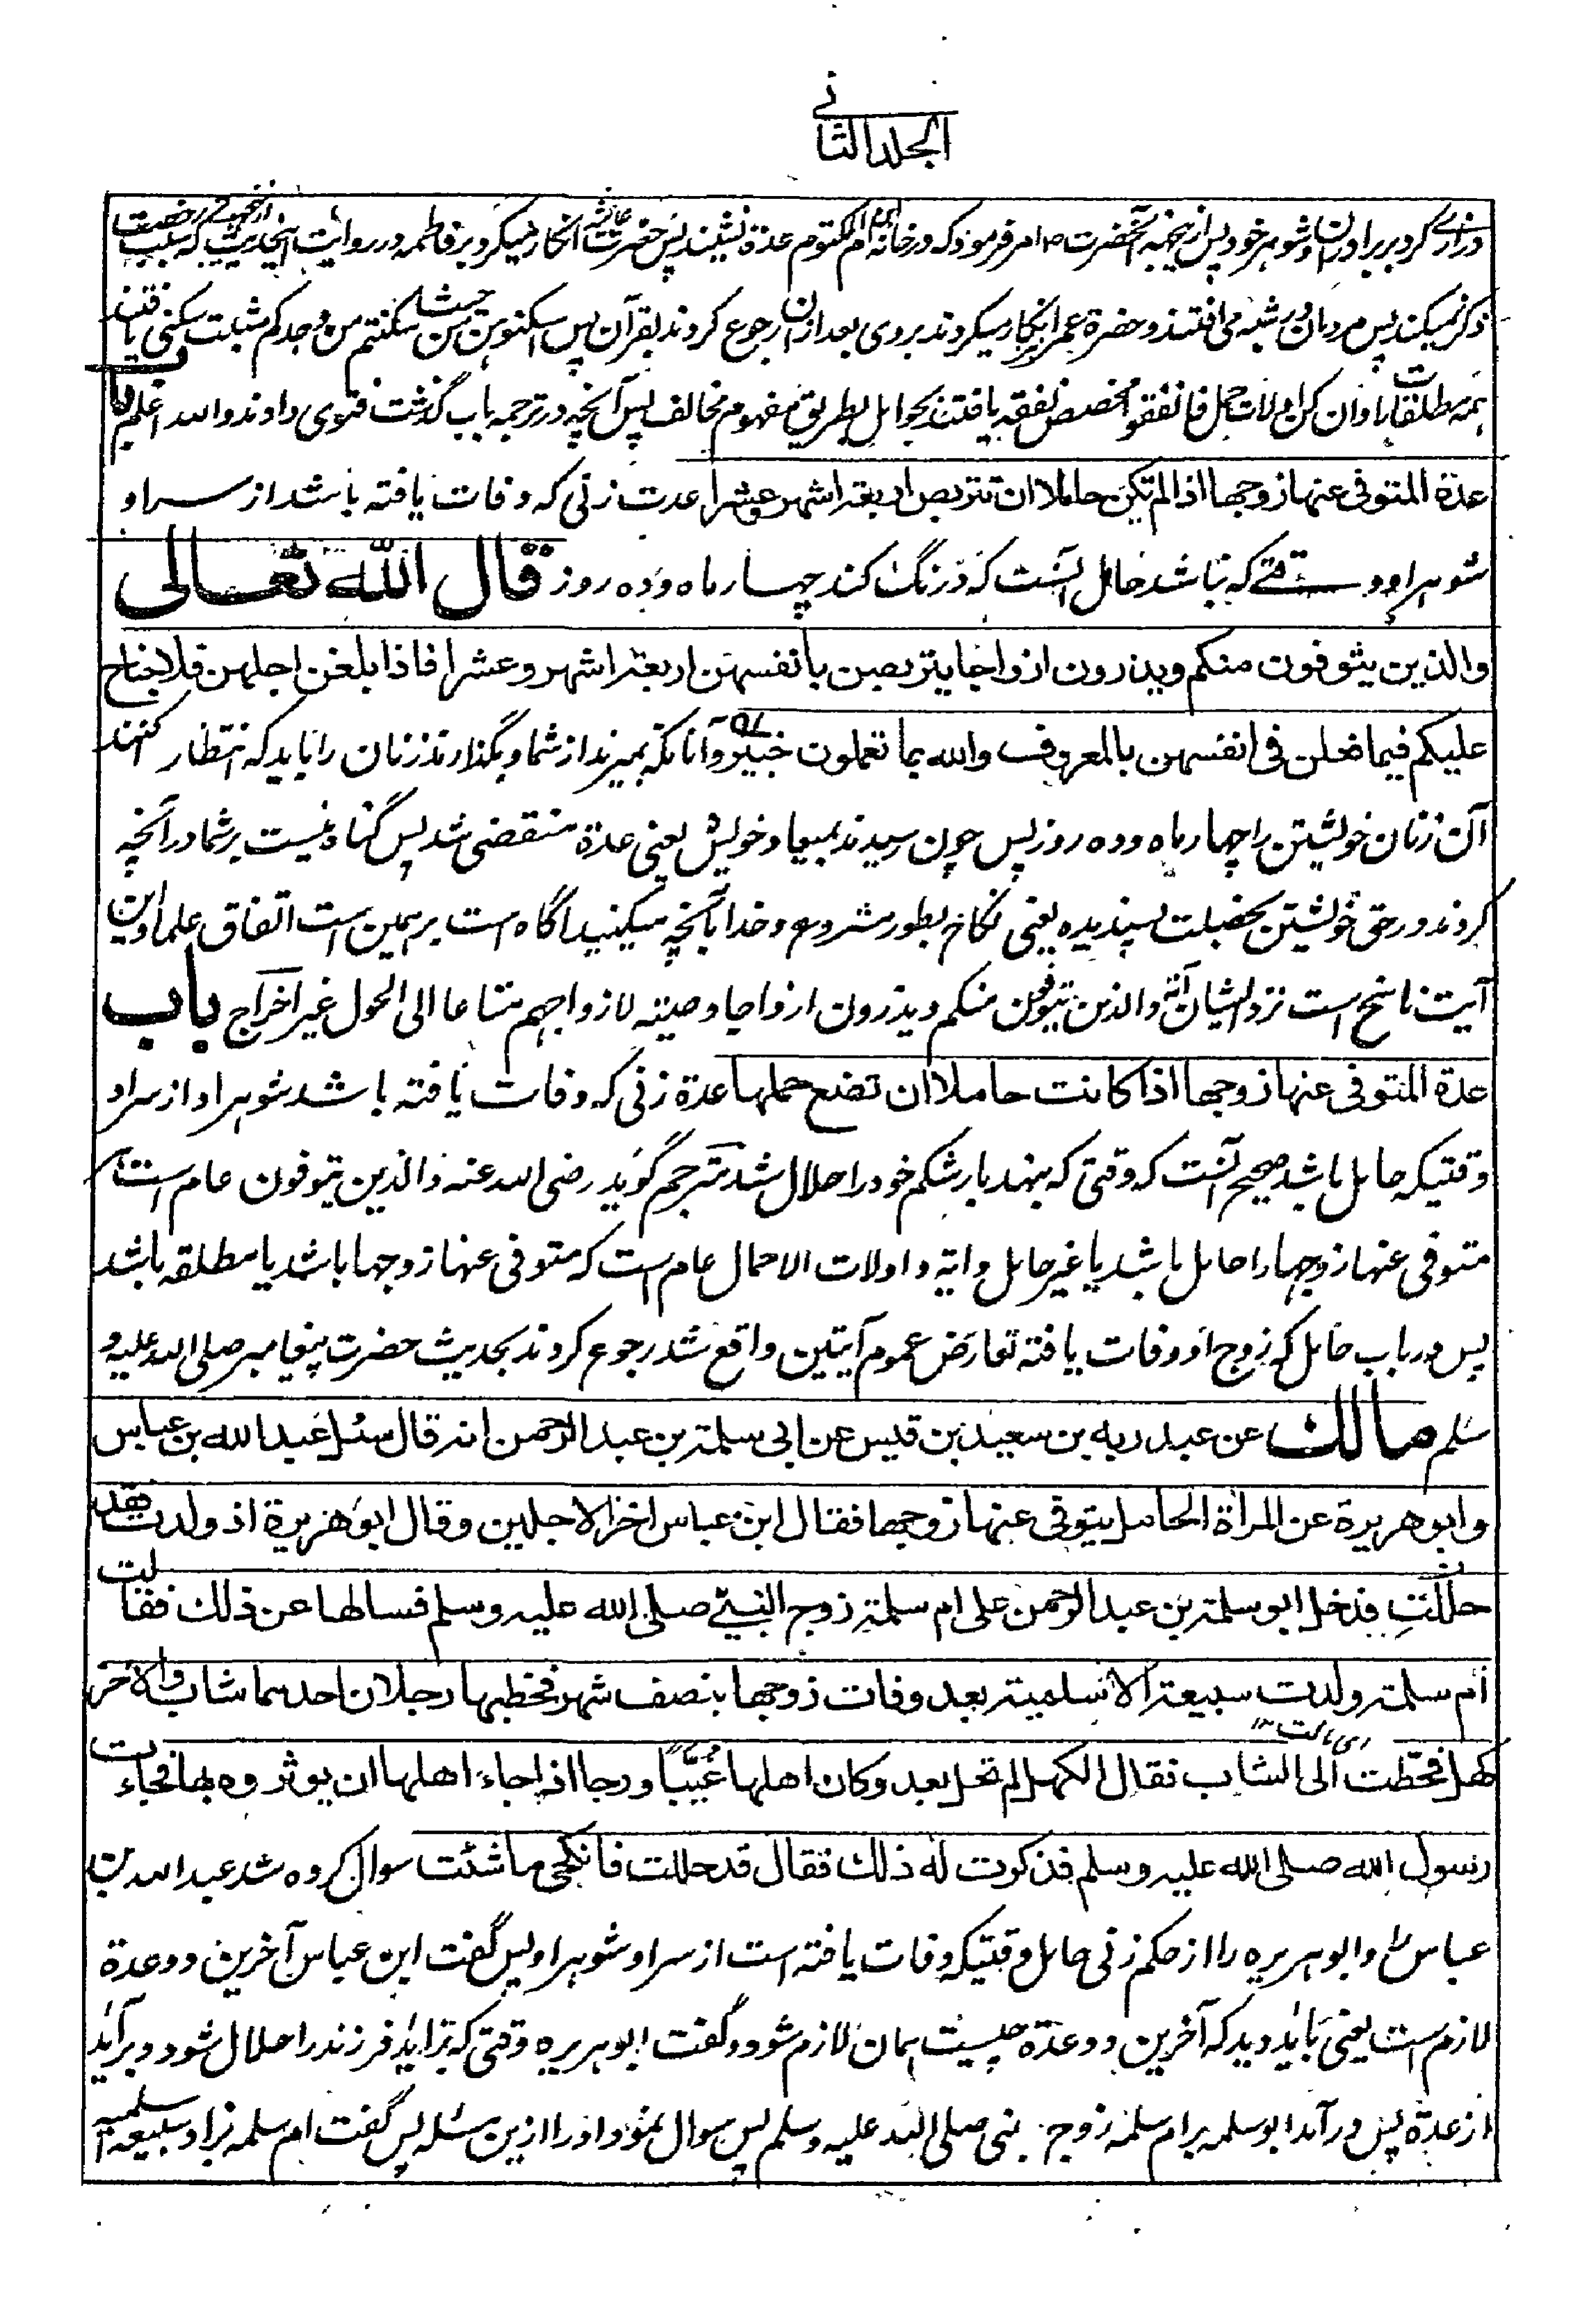 الجلد الثانی
درازی کرد بر برادران شوهر خود پس ازینجهة آنحضرت امر فرمود که در خانه ابن ام المکتوم عدة نشیند پس حضرت عائشه انکار میکرد بر فاطمه در روایت اینحدیث که سبب رخصت
ذکر نمیکند پس مردمان در شبه می افتند و حضرة عمر انکار میکردند بروی بعد ازان رجوع کردند بقرآن پس اسکنوهن من حیث سکنتم من وجدکم مثبت سکنی یافتند
همه مطلقات را وان کن اولات حمل فانفقوا مخصص نفقه یافتند بحوامل بطریق مفهوم مخالف پس آنچه در ترجمه باب گذشت فتوی دادند والله اعلم باب
عدة المتوفی عنها زوجها اذا لم تکن حاملا ان تتربص اربعة اشهر وعشرا عدت زنی که وفات یافته باشد از سر او
شوهر او وقتی که نباشد حامل آنست که درنگ کند چهار ماه و ده روز قال الله تعالی
والذین یتوفون منکم ویذرون ازواجا یتربصن بانفسهن اربعة اشهر وعشرا فاذا بلغن اجلهن فلا جناح
علیکم فیما فعلن فی انفسهن بالمعروف والله بما تعملون خبیر وآنانکه بمیرند از شما و بگذارند زنان را باید که انتظار کنند
آن زنان خویشتن را چهار ماه و ده روز پس چون رسیدند بمیعاد خویش یعنی عدة منقضی شد پس گناه نیست بر شما در آنچه
کردند در حق خویشتن بخصلت پسندیده یعنی نکاح بطور مشروع و خدا بآنچه میکنید آگاه است بر همین است اتفاق علما و این
آیت ناسخ است نزد ایشان آیة والذین یتوفون منکم ویذرون ازواجا وصیة لازواجهم متاعا الی الحول غیر اخراج باب
عدة المتوفی عنها زوجها اذا کانت حاملا ان تضع حملها عدة زنی که وفات یافته باشد شوهر او از سر او
وقتیکه حامل باشد صحیح آنست که وقتی که بنهد بار شکم خود را حلال شد مترجم گوید رضی الله عنه والذین یتوفون عام است
متوفی عنها زوجها را حامل باشد یا غیر حامل وایة واولات الاحمال عام است که متوفی عنها زوجها باشد یا مطلقه باشد
پس در باب حامل که زوج او وفات یافته تعارض عموم آیتین واقع شد رجوع کردند بحدیث حضرت پیغامبر صلی الله علیه و
سلم مالك عن عبد ربه بن سعید بن قیس عن ابی سلمة بن عبد الرحمن انه قال سئل عبد الله بن عباس
وابو هریرة عن المرأة الحامل یتوفی عنها زوجها فقال ابن عباس اخر الاجلین وقال ابو هریرة اذ ولدت فقد
حللت فدخل ابو سلمة بن عبد الرحمن علی ام سلمة زوج النبی صلی الله علیه وسلم فسالها عن ذلك فقالت
ام سلمة ولدت سبیعة الاسلمیة بعد وفات زوجها بنصف شهر فخطبها رجلان احدهما شاب والاخر
کهل فحطت الی الشاب فقال الکهل لم تحل بعد وکان اهلها غیبا ورجا اذا جاء اهلها ان یوثروه بها فجاءت
ای مالت ١٢
رسول الله صلی الله علیه وسلم فذکرت له ذلك فقال قد حللت فانکحی ما شئت سوال کرده شد عبد الله بن
عباس و ابو هریره را از حکم زنی حامل وقتیکه وفات یافته است از سر او شوهر او پس گفت ابن عباس آخرین دو عدة
لازم است یعنی باید دید که آخرین دو عدة چیست همان لازم شود و گفت ابو هریره وقتی که بزاید فرزند را حلال شود و برآید
از عدة پس در آمد ابو سلمه بر ام سلمه زوج نبی صلی الله علیه وسلم پس سوال نمود او را ازین مسئله پس گفت ام سلمه بزاد سبیعه اسلمیه